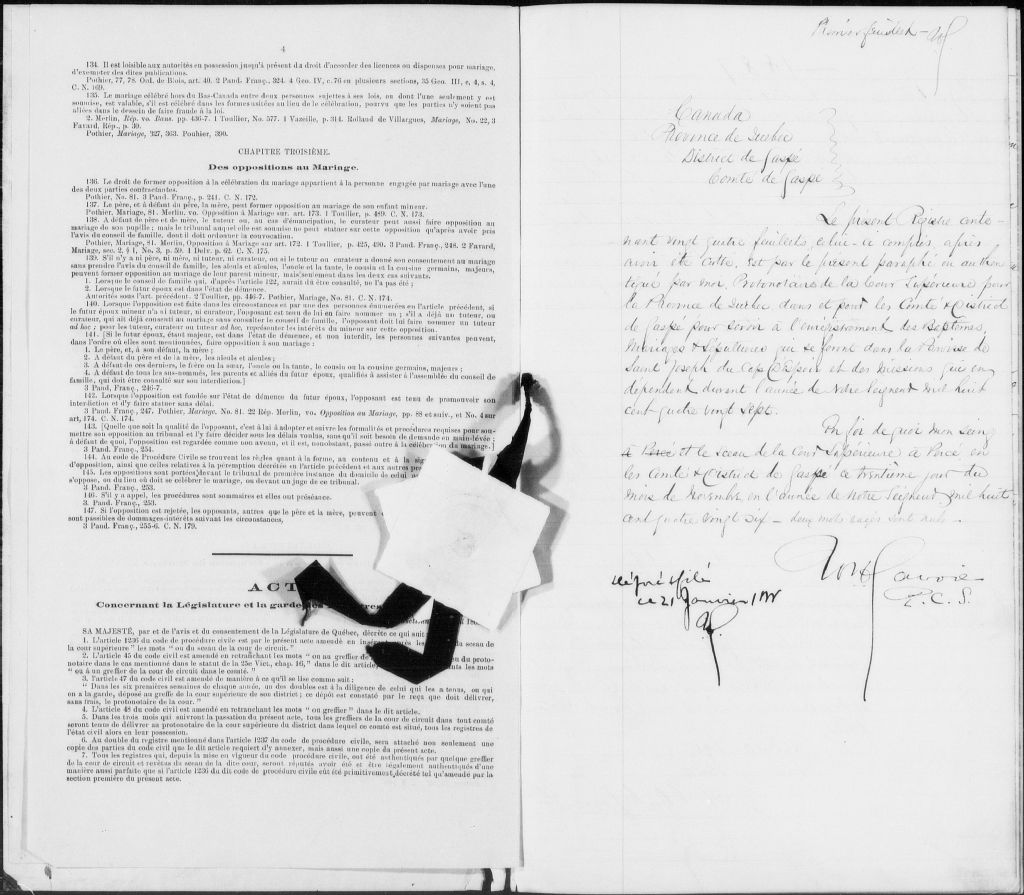 4
134. Il est loisible aux autorités en possession jusqu'à présent du droit d'accorder des licences ou dispenses pour mariage,
d'exempter des dites publications.
Pothier, 77, 78. Ord. de Blois, art. 40. 2 Pand. Franç., 324. 4 Geo. IV, c. 76 en plusieurs sections, 35 Geo. III, c. 4, s. 4,
C. N. 169.
135. Le mariage célébré hors du Bas-Canada entre deux personnes sujettes à ses lois, ou dont l'une seulement y est
soumise, est valable, s'il est célébré dans les formes usitées au lieu de la célébration, pourvu que les parties n'y soient pas
allées dans le dessein de faire fraude à la loi.
2. Merlin, Rép. vo. Bans. pp. 436-7. 1 Toullier, No. 577. 1 Vazeille, p. 314. Rolland de Villargues, Mariage, No. 22, 3
Favard, Rép., p. 39.
Pothier, Mariage, 327, 363. Pouhier, 390.
CHAPITRE TROISIÈME.
Des oppositions au Mariage.
136. Le droit de former opposition à la célébration du mariage appartient à la personne engagée par mariage avec l'une
des deux parties contractantes.
Pothier, No. 81. 3 Pand. Franç., p. 241. C. N. 172.
137. Le père, et à défaut du père, la mère, peut former opposition au mariage de son enfant mineur.
Pothier, Mariage, 81. Merlin. vo. Opposition à Mariage sur. art. 173. 1 Toullier, p. 489. C. N. 173.
138. A défaut de père et de mère, le tuteur ou, au cas d'émancipation, le curateur peut aussi faire opposition au
mariage de son pupille; mais le tribunal auquel elle est soumise ne peut statuer sur cette opposition qu'après avoir pris
l'avis du conseil de famille, dont il doit ordonner la convocation.
Pothier, Mariage, 81. Merlin, Opposition à Mariage sur art. 172. 1 Toullier, p. 425, 490. 3 Pand. Franç., 248. 2 Favard,
Mariage, sec. 2, § 1, No. 3, p. 59. 1 Delv. p. 62. C. N. 175.
139. S'il n'y a ni père, ni mère, ni tuteur, ni curateur, ou si le tuteur ou curateur a donné son consentement au mariage
sans prendre l'avis du conseil de famille, les aïeuls et aïeules, l'oncle et la tante, le cousin et la cousine germains, majeurs,
peuvent former opposition au mariage de leur parent mineur, mais seulement dans les deux cas suivants.
1. Lorsque le conseil de famille qui, d'après l'article 122, aurait dû être consulté, ne l'a pas été;
2. Lorsque le futur époux est dans l'état de démence.
Autorités sous l'art. précédent. 2 Toullier, pp. 446-7. Pothier, Mariage, No. 81. C. N. 174.
140. Lorsque l'opposition est faite dans les circonstances et par une des personnes énumérées en l'article précédent, si
le futur époux mineur n'a ni tuteur, ni curateur, l'opposant est tenu de lui en faire nommer un; s'il a déjà un tuteur, ou
curateur, qui ait déjà consenti au mariage sans consulter le conseil de famille, l'opposant doit lui faire nommer un tuteur
ad hoc; pour les tuteur, curateur ou tuteur ad hoc, représenter les intérêts du mineur sur cette opposition.
141. [Si le futur époux, étant majeur, est dans l'état de démence, et non interdit, les personnes suivantes peuvent,
dans l'ordre où elles sont mentionnées, faire opposition à son mariage:
1. Le père, et, à son défaut, la mère;
2. A défaut du père et de la mère, les aïeuls et aïeules;
3. A défaut de ces derniers, le frère ou la sœur, l'oncle ou la tante, le cousin ou la cousine germains, majeurs;
4. A défaut de tous les sus-nommés, les parents et alliés du futur époux, qualifiés à assister à l'assemblée du conseil de
famille, qui doit être consulté sur son interdiction.]
3 Pand. Franç., 246-7.
142. Lorsque l'opposition est fondée sur l'état de démence du futur époux, l'opposant est tenu de promouvoir son
interdiction et d'y faire statuer sans délai.
3 Pand. Franç., 247. Pothier, Mariage. No. 81. 22 Rép. Merlin, vo. Opposition au Mariage, pp. 88 et suiv., et No. 4 sur
art, 174. C. N. 174.
143. [Quelle que soit la qualité de l'opposant, c'est à lui à adopter et suivre les formalités et procédures requises pour sou-
mettre son opposition au tribunal et l'y faire décider sous les délais voulus, sans qu'il soit besoin de demande en main-levée;
à défaut de quoi, l'opposition est regardée comme non avenu, et il est, nonobstant, passé outre à la célébration du mariage.]
3 Pand. Franç., 254.
144. Au code de Procédure Civile se trouvent les règles quant à la forme, au contenu et à la sig
d'opposition, ainsi que celles relatives à la péremption décrétée en l'article précédent et aux autres pro
145. Les oppositions sont portées devant le tribunal de première instance du domicile de celui
s'oppose, ou du lieu où doit se célébrer le mariage, ou devant un juge de ce tribunal.
3 Pand. Franç., 253.
146. S'il y a appel, les procédures sont sommaires et elles ont préséance.
3. Pand. Franç., 253.
147. Si l'opposition est rejetée, les opposants, autres que le père et la mère, peuvent
sont passibles de dommages-intérêts suivant les circonstances,
3 Pand. Franç., 255-6. C. N. 179.
ACT
Concernant la Législature et la garde des
SA MAJESTÉ, par et de l'avis et du consentement de la Législature de Québec, décrète ce qui suit
1. L'article 1236 du code de procédure civile est par le présent acte amendé en
la cour supérieure" les mots "ou du sceau de la cour de circuit."
2. L'article 45 du code civil est amendé en retranchant les mots "ou au greffier de
notaire dans le cas mentionné dans le statut de la 25e Vict., chap. 16," dans le dit article
"ou à un greffier de la cour de circuit dans le comté."
3. l'article 47 du code civil est amendé de manière à ce qu'il se lise comme suit:
"Dans les six premières semaines de chaque année, un des doubles est à la diligence de celui qui les a tenus, ou qui
en a la garde, déposé au greffe de la cour supérieure de son district; ce dépôt est constaté par le reçu que doit délivrer,
sans frais, le protonotaire de la cour."
4. L'article 48 du code civil est amendé en retranchant les mots "ou greffier" dans le dit article.
5. Dans les trois mois qui suivront la passation du présent acte, tous les greffiers de la cour de circuit dans tout comté
seront tenus de délivrer au protonotaire de la cour supérieure du district dans lequel ce comté est situé, tous les registres de
l'état civil alors en leur possession.
6. Au double du registre mentionné dans l'article 1237 du code de procédure civile, sera attaché non seulement une
copie des parties du code civil que le dit article requiert d'y annexer, mais aussi une copie du présent acte.
7. Tous les registres qui, depuis la mise en vigueur du code procédure civile, ont été authentiqués par quelque greffier
de la cour de circuit et revêtus du sceau de la dite cour, seront réputés avoir été et être légalement authentiqués d'une
manière aussi parfaite que si l'article 1236 du dit code de procédure civile eût été primitivement décrété tel qu'amendé par la
section première du présent acte.
Premier feuillet
Canada
Province de Québec
District de Gaspé
Comté de Gaspé
Le présent Régistre conte-
nant vingt quatre feuillets, celui-ci compris, après
avoir été cotté, est par le présent paraphé et authen
tiqué par moi, Protonotaire de la Cour Supérieure pour
la Province de Québec dans et pour les Comté & District
de Gaspé pour servir à l'enregistrement des Baptêmes,
Mariages & Sépultures qui se feront dans la Paroisse de
Saint Joseph du Cap d'Espoir et des Missions qui en
dépendent durant l'année de Notre Seigneur Mil huit
cent quatre vingt sept.
En foi de quoi mon seing
et le sceau de la Cour Supérieure à Percé, en
les Comté & District de Gaspé ce trentième jour du
mois de Novembre en l'année de Notre Seigneur mil huit
cent quatre vingt six — deux mots rayés sont nuls —
P. C. S.
Déposé & filé
ce 21 Janvier